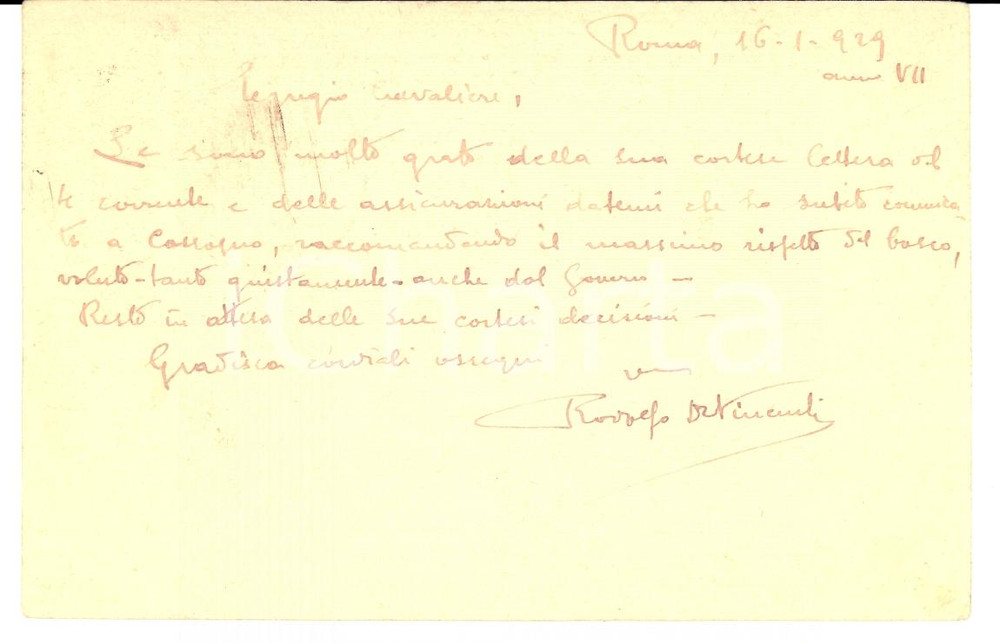 Roma, 16-1-929
anno VII
Egregio Cavaliere,
Le sono molto grato della sua cortese lettera del
corrente e delle assicurazioni datemi che ho subito comunica-
to a Cossogno, raccomandando il massimo rispetto del bosco,
voluto-tanto giustamente-anche dal Governo -
Resto in attesa delle sue cortesi decisioni -
Gradisca cordiali ossequi
Rodolfo De Vincenti
Charta